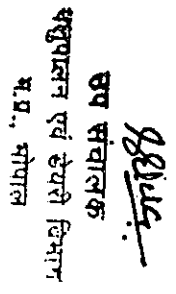 उप संचालक
पशुपालन एवं डेयरी विभाग
म.प्र., भोपाल